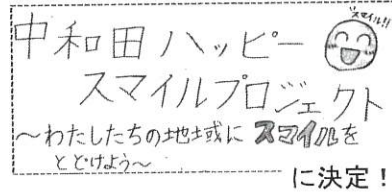 スマイル!!
中和田ハッピー
スマイルプロジェクト
～わたしたちの地域にスマイルを
とどけよう～
に決定！